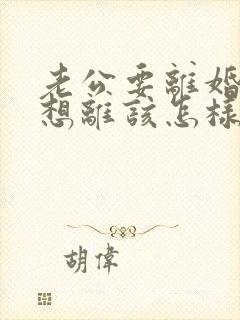 老公要離婚
想離該怎樣
胡偉